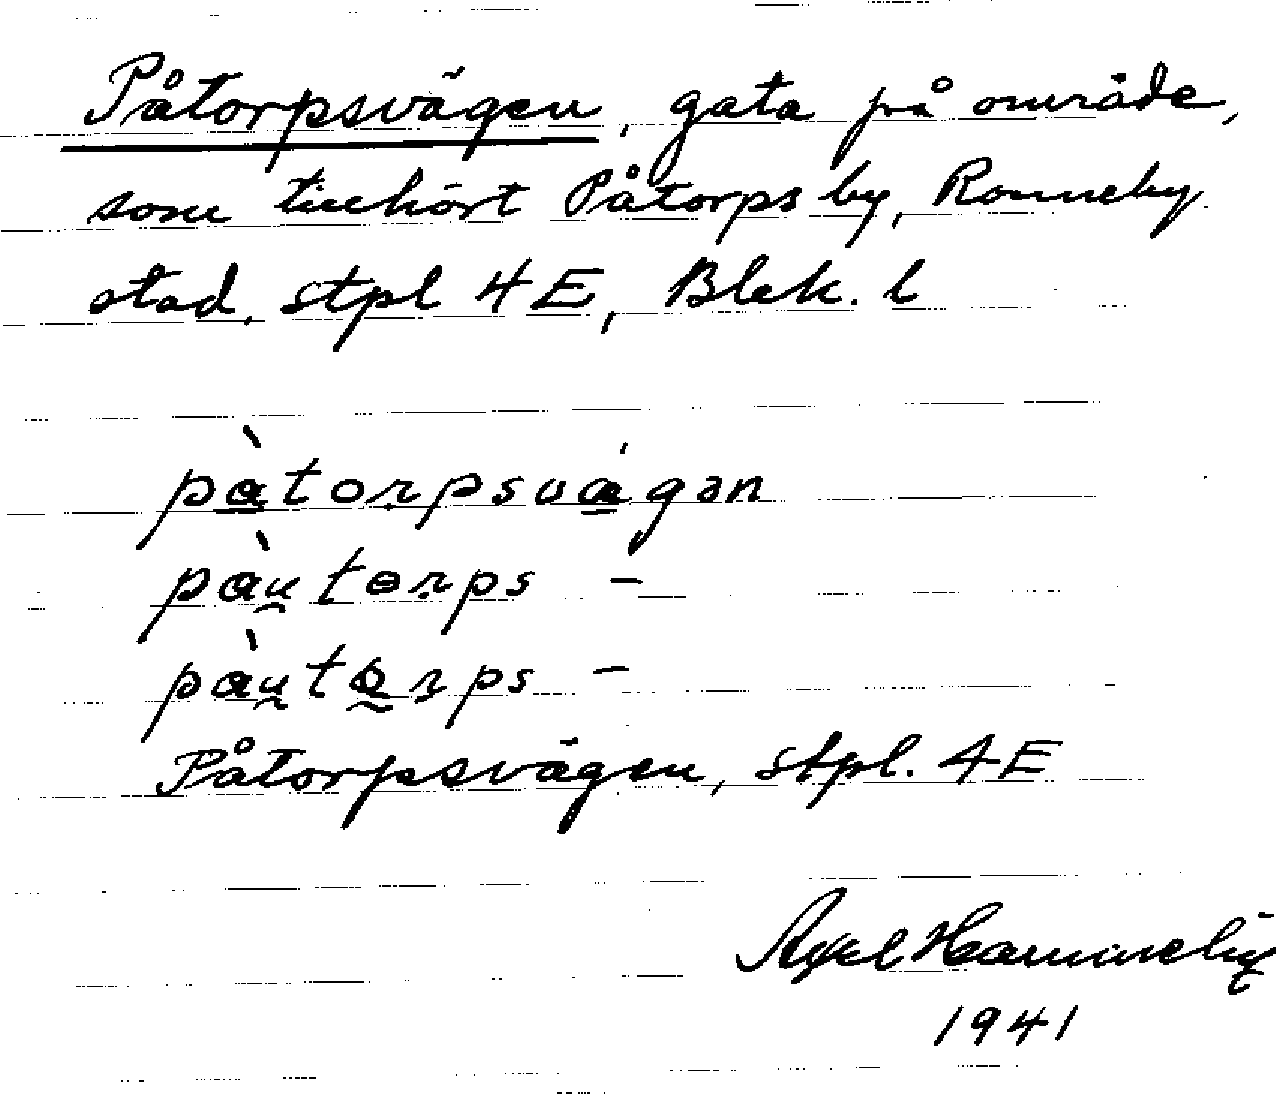 Påtorpsvägen, gata på område,
som tillhört Påtorps by, Ronneby
stad, stpl 4E, Blek. l
pàtorpsvágən
pàu̯torps –
pàu̯tərps –
Påtorpsvägen, stpl. 4E
Axel
1941